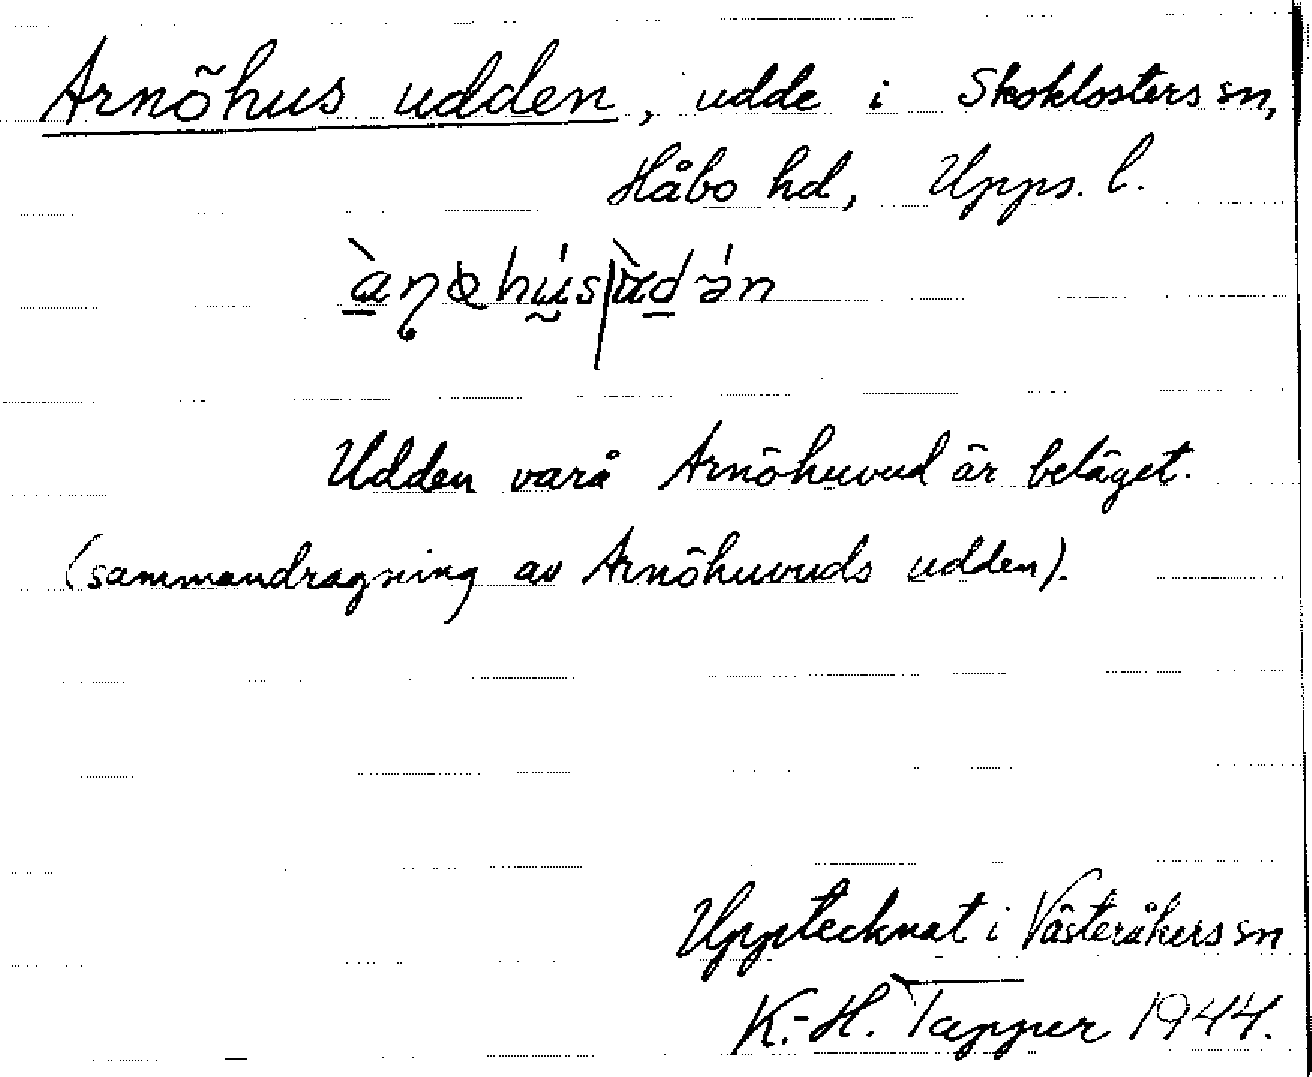 Arnöhus udden, udde i Skoklosters sn,
Håbo hd, Upps. l.
Udden varå Arnöhuvud är beläget.
(sammandragning av Arnöhuvuds udden).
Upptecknat i Västeråkers sn
K.-H. Tapper 1944.